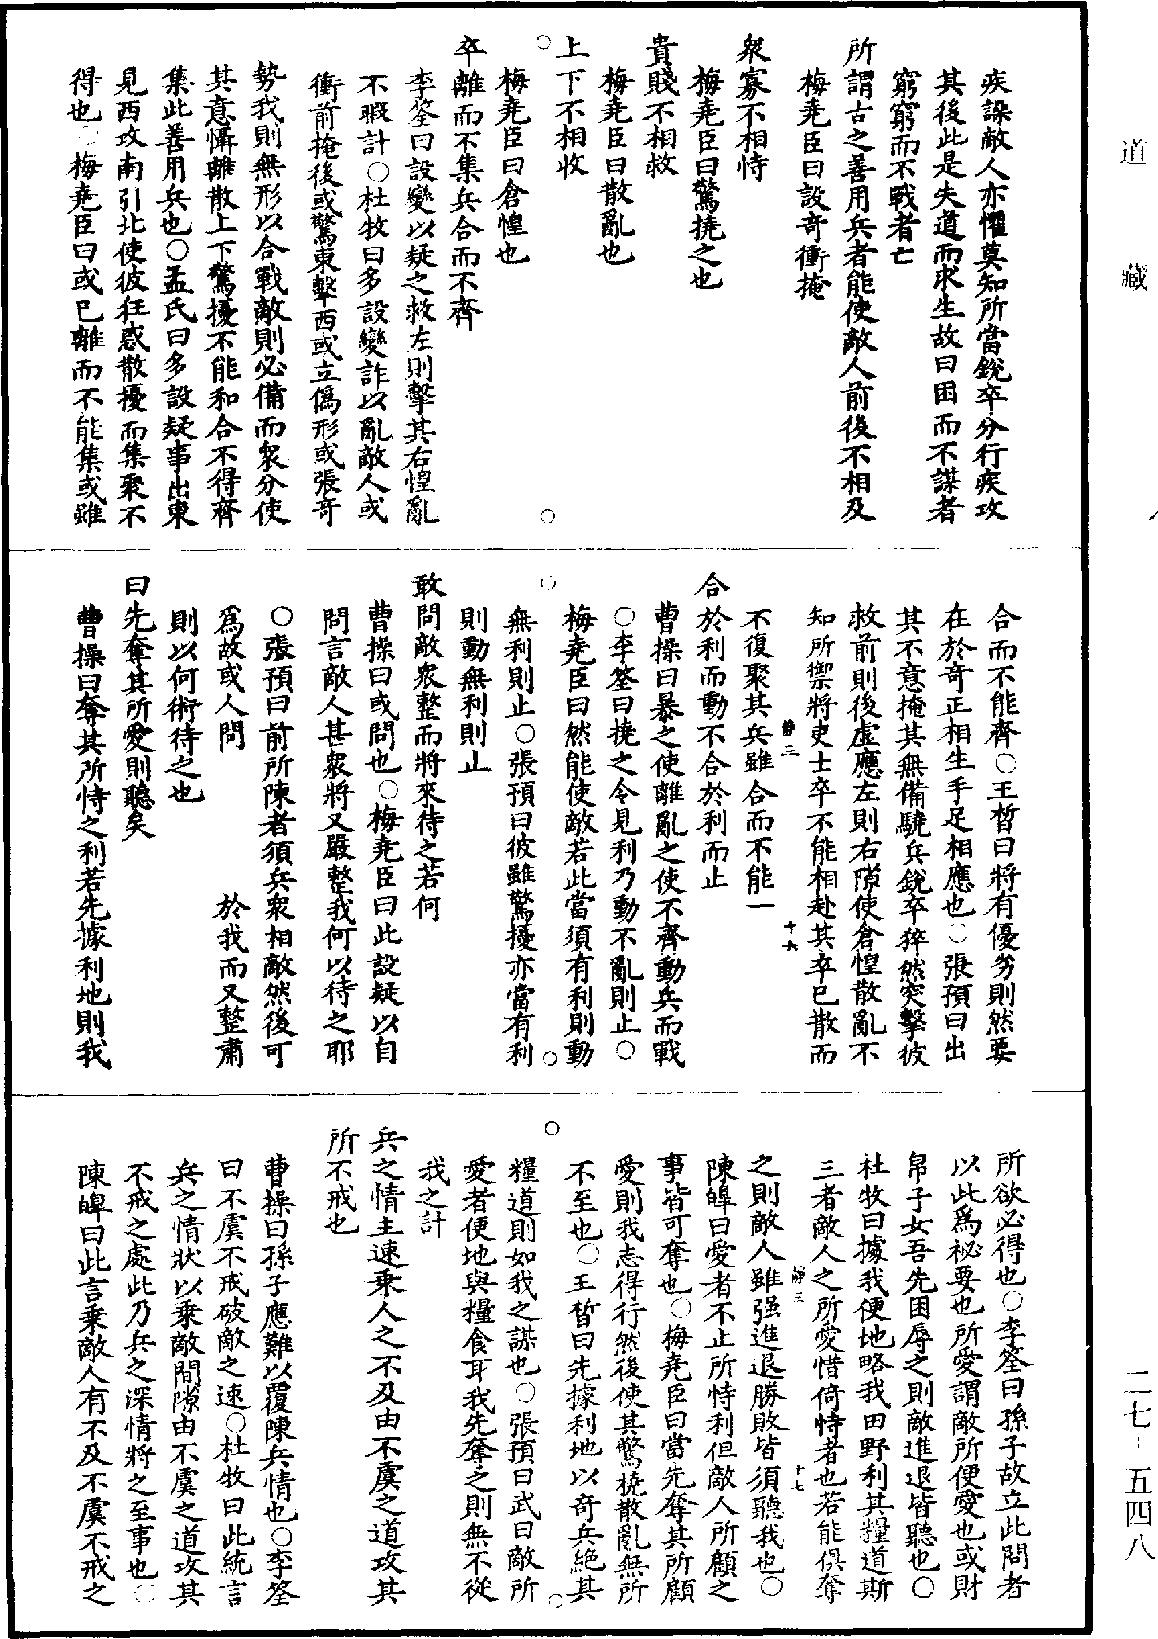 道藏
疾譟敵人亦懼莫知所當銳卒分行疾攻
其後此是失道而求生故曰困而不謀者
窮窮而不戰者亡
所謂古之善用兵者能使敵人前後不相及
梅堯臣曰設奇衝掩
衆寡不相恃
梅堯臣曰驚撓之也
貴賤不相救
梅堯臣曰散亂也
上下不相收
梅堯臣曰倉惶也
卒離而不集兵合而不齊
李筌曰設變以疑之救左則擊其右惶亂
不暇計○杜牧曰多設變詐以亂敵人或
衝前掩後或驚東擊西或立僞形或張奇
勢我則無形以合戰敵則必備而衆分使
其意懾離散上下驚擾不能和合不得齊
集此善用兵也○孟氏曰多設疑事出東
見西攻南引北使彼狂惑散擾而集聚不
得也○梅堯臣曰或已離而不能集或雖
合而不能齊○王晳曰將有優劣則然要
在於奇正相生手足相應也○張預曰出
其不意掩其無備驍兵銳卒猝然突擊彼
救前則後虛應左則右隙使倉惶散亂不
知所禦將吏士卒不能相赴其卒已散而
靜三 十六
不復聚其兵雖合而不能一
合於利而動不合於利而止
曹操曰暴之使離亂之使不齊動兵而戰
○李筌曰撓之令見利乃動不亂則止○
梅堯臣曰然能使敵若此當須有利則動
無利則止○張預曰彼雖驚擾亦當有利
則動無利則止
敢問敵衆整而將來待之若何
曹操曰或問也○梅堯臣曰此設疑以自
問言敵人甚衆將又嚴整我何以待之耶
○張預曰前所陳者須兵衆相敵然後可
爲故或人問 於我而又整肅
則以何術待之也
曰先奪其所愛則聽矣
曹操曰奪其所恃之利若先據利地則我
所欲必得也○李筌曰孫子故立此問者
以此爲祕要也所愛謂敵所便愛也或財
帛子女吾先困辱之則敵進退皆聽也○
杜牧曰據我便地略我田野利其糧道斯
三者敵人之所愛惜倚恃者也若能俱奪
靜三 十七
之則敵人雖强進退勝敗皆須聽我也○
陳皥曰愛者不止所恃利但敵人所顧之
事皆可奪也○梅堯臣曰當先奪其所顧
愛則我志得行然後使其驚撓散亂無所
不至也○王晳曰先據利地以奇兵絕其
糧道則如我之謀也○張預曰武曰敵所
愛者便地與糧食耳我先奪之則無不從
我之計
兵之情主速乘人之不及由不虞之道攻其
所不戒也
曹操曰孫子應難以覆陳兵情也○李筌
曰不虞不戒破敵之速○杜牧曰此統言
兵之情狀以乘敵間隙由不虞之道攻其
不戒之處此乃兵之深情將之至事也○
陳皥曰此言乘敵人有不及不虞不戒之
二七-五四八